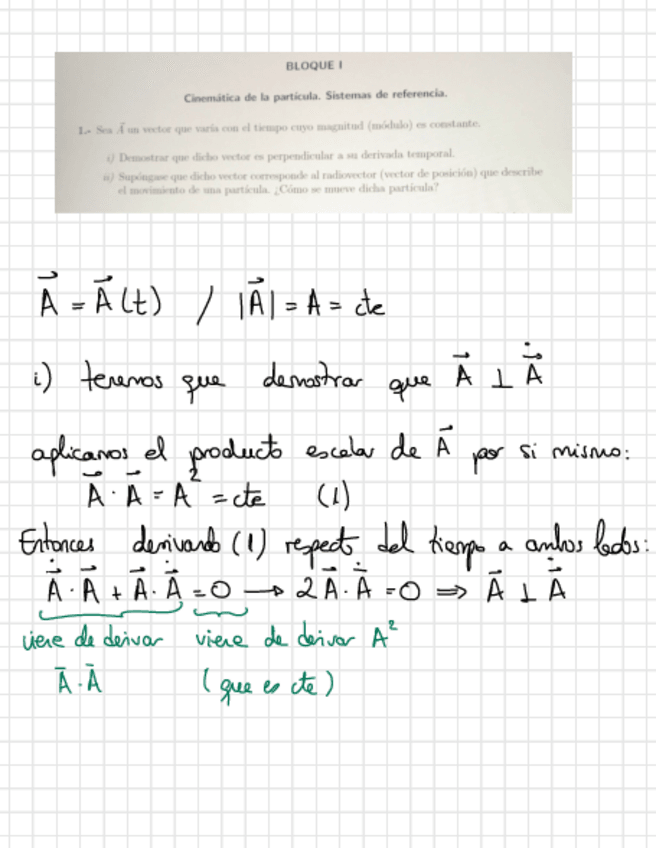 BLOQUE I
Cinemática de la partícula. Sistemas de referencia.
1.- Sea A⃗ un vector que varía con el tiempo cuyo magnitud (módulo) es constante.
i) Demostrar que dicho vector es perpendicular a su derivada temporal.
ii) Supóngase que dicho vector corresponde al radiovector (vector de posición) que describe
el movimiento de una partícula. ¿Cómo se mueve dicha partícula?
A⃗ = A⃗(t) / |A⃗| = A = cte
i) tenemos que demostrar que A⃗ ⊥ Ȧ⃗
aplicamos el producto escalar de A⃗ por si mismo:
A⃗ · A⃗ = A² = cte (1)
Entonces derivando (1) respecto del tiempo a ambos lados:
Ȧ⃗ · A⃗ + A⃗ · Ȧ⃗ = 0 → 2 A⃗ · Ȧ⃗ = 0 ⇒ A⃗ ⊥ Ȧ⃗
viene de derivar viene de derivar A²
A⃗ · A⃗ (que es cte)